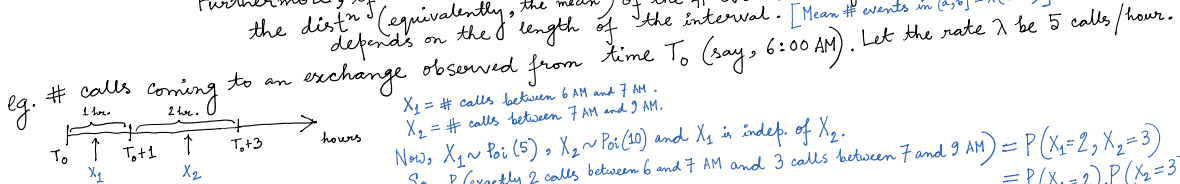 the distⁿ (equivalently, the mean) of the # events in (a,b]
depends on the length of the interval. [Mean # events in (a,b] =
eg. # calls coming to an exchange observed from time T₀ (say, 6:00 AM). Let the rate λ be 5 calls/hour.
1 hr. 2 hr.
X₁ = # calls between 6 AM and 7 AM.
X₂ = # calls between 7 AM and 9 AM.
T₀ T₀+1 T₀+3 hours
X₁ X₂
Now, X₁ ~ Poi(5), X₂ ~ Poi(10) and X₁ is indep. of X₂.
So P(exactly 2 calls between 6 and 7 AM and 3 calls between 7 and 9 AM) = P(X₁=2, X₂=3)
= P(X₁=2).P(X₂=3